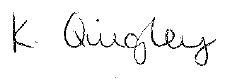 K. Quigley